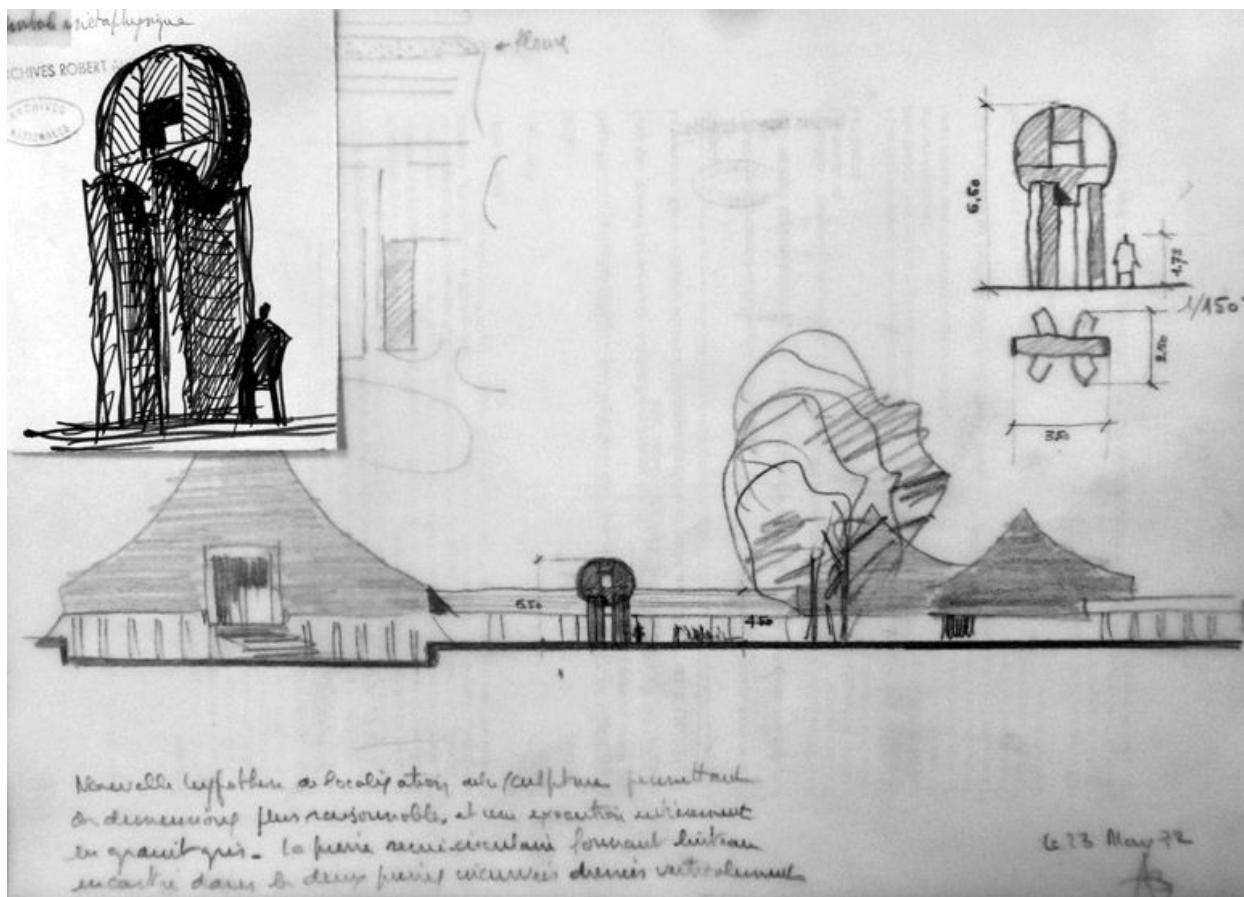 métaphysique
ARCHIVES ROBERT
ARCHIVES
NATIONALES
← fleurs
6,50
1,72
1/150
2,50
3,50
6,50
4,50
Nouvelle hypothèse de localisation de la sculpture permettant
des dimensions plus raisonnable, et une exécution entièrement
en granit gris. La pierre semi-circulaire formant linteau
encastré dans les deux pierres incurvées dressées verticalement
le 23 May 72